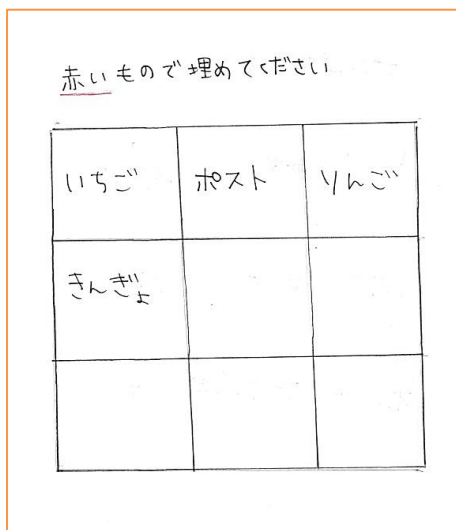 赤いもので埋めてください
いちご ポスト りんご
きんぎょ